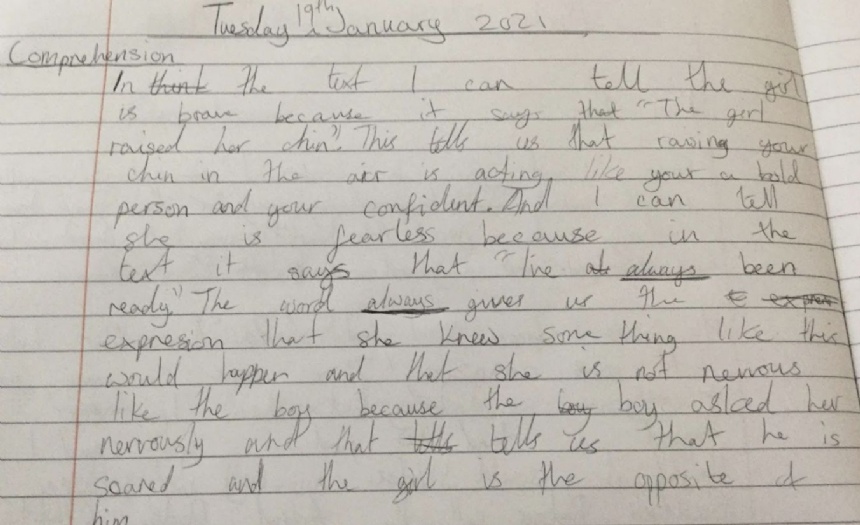 Tuesday 19th January 2021
Comprehension
In think the text I can tell the girl
is brave because it says that "The girl
raised her chin". This tells us that rasing your
chin in the air is acting like your a bold
person and your confident. And I can tell
she is fearless because in the
text it says that "I've always been
ready" The word always gives us the
expresion that she knew some thing like this
would happen and that she is not nervous
like the boy because the boy boy asked her
nervously and that tells us that he is
scared and the girl is the opposite of
him